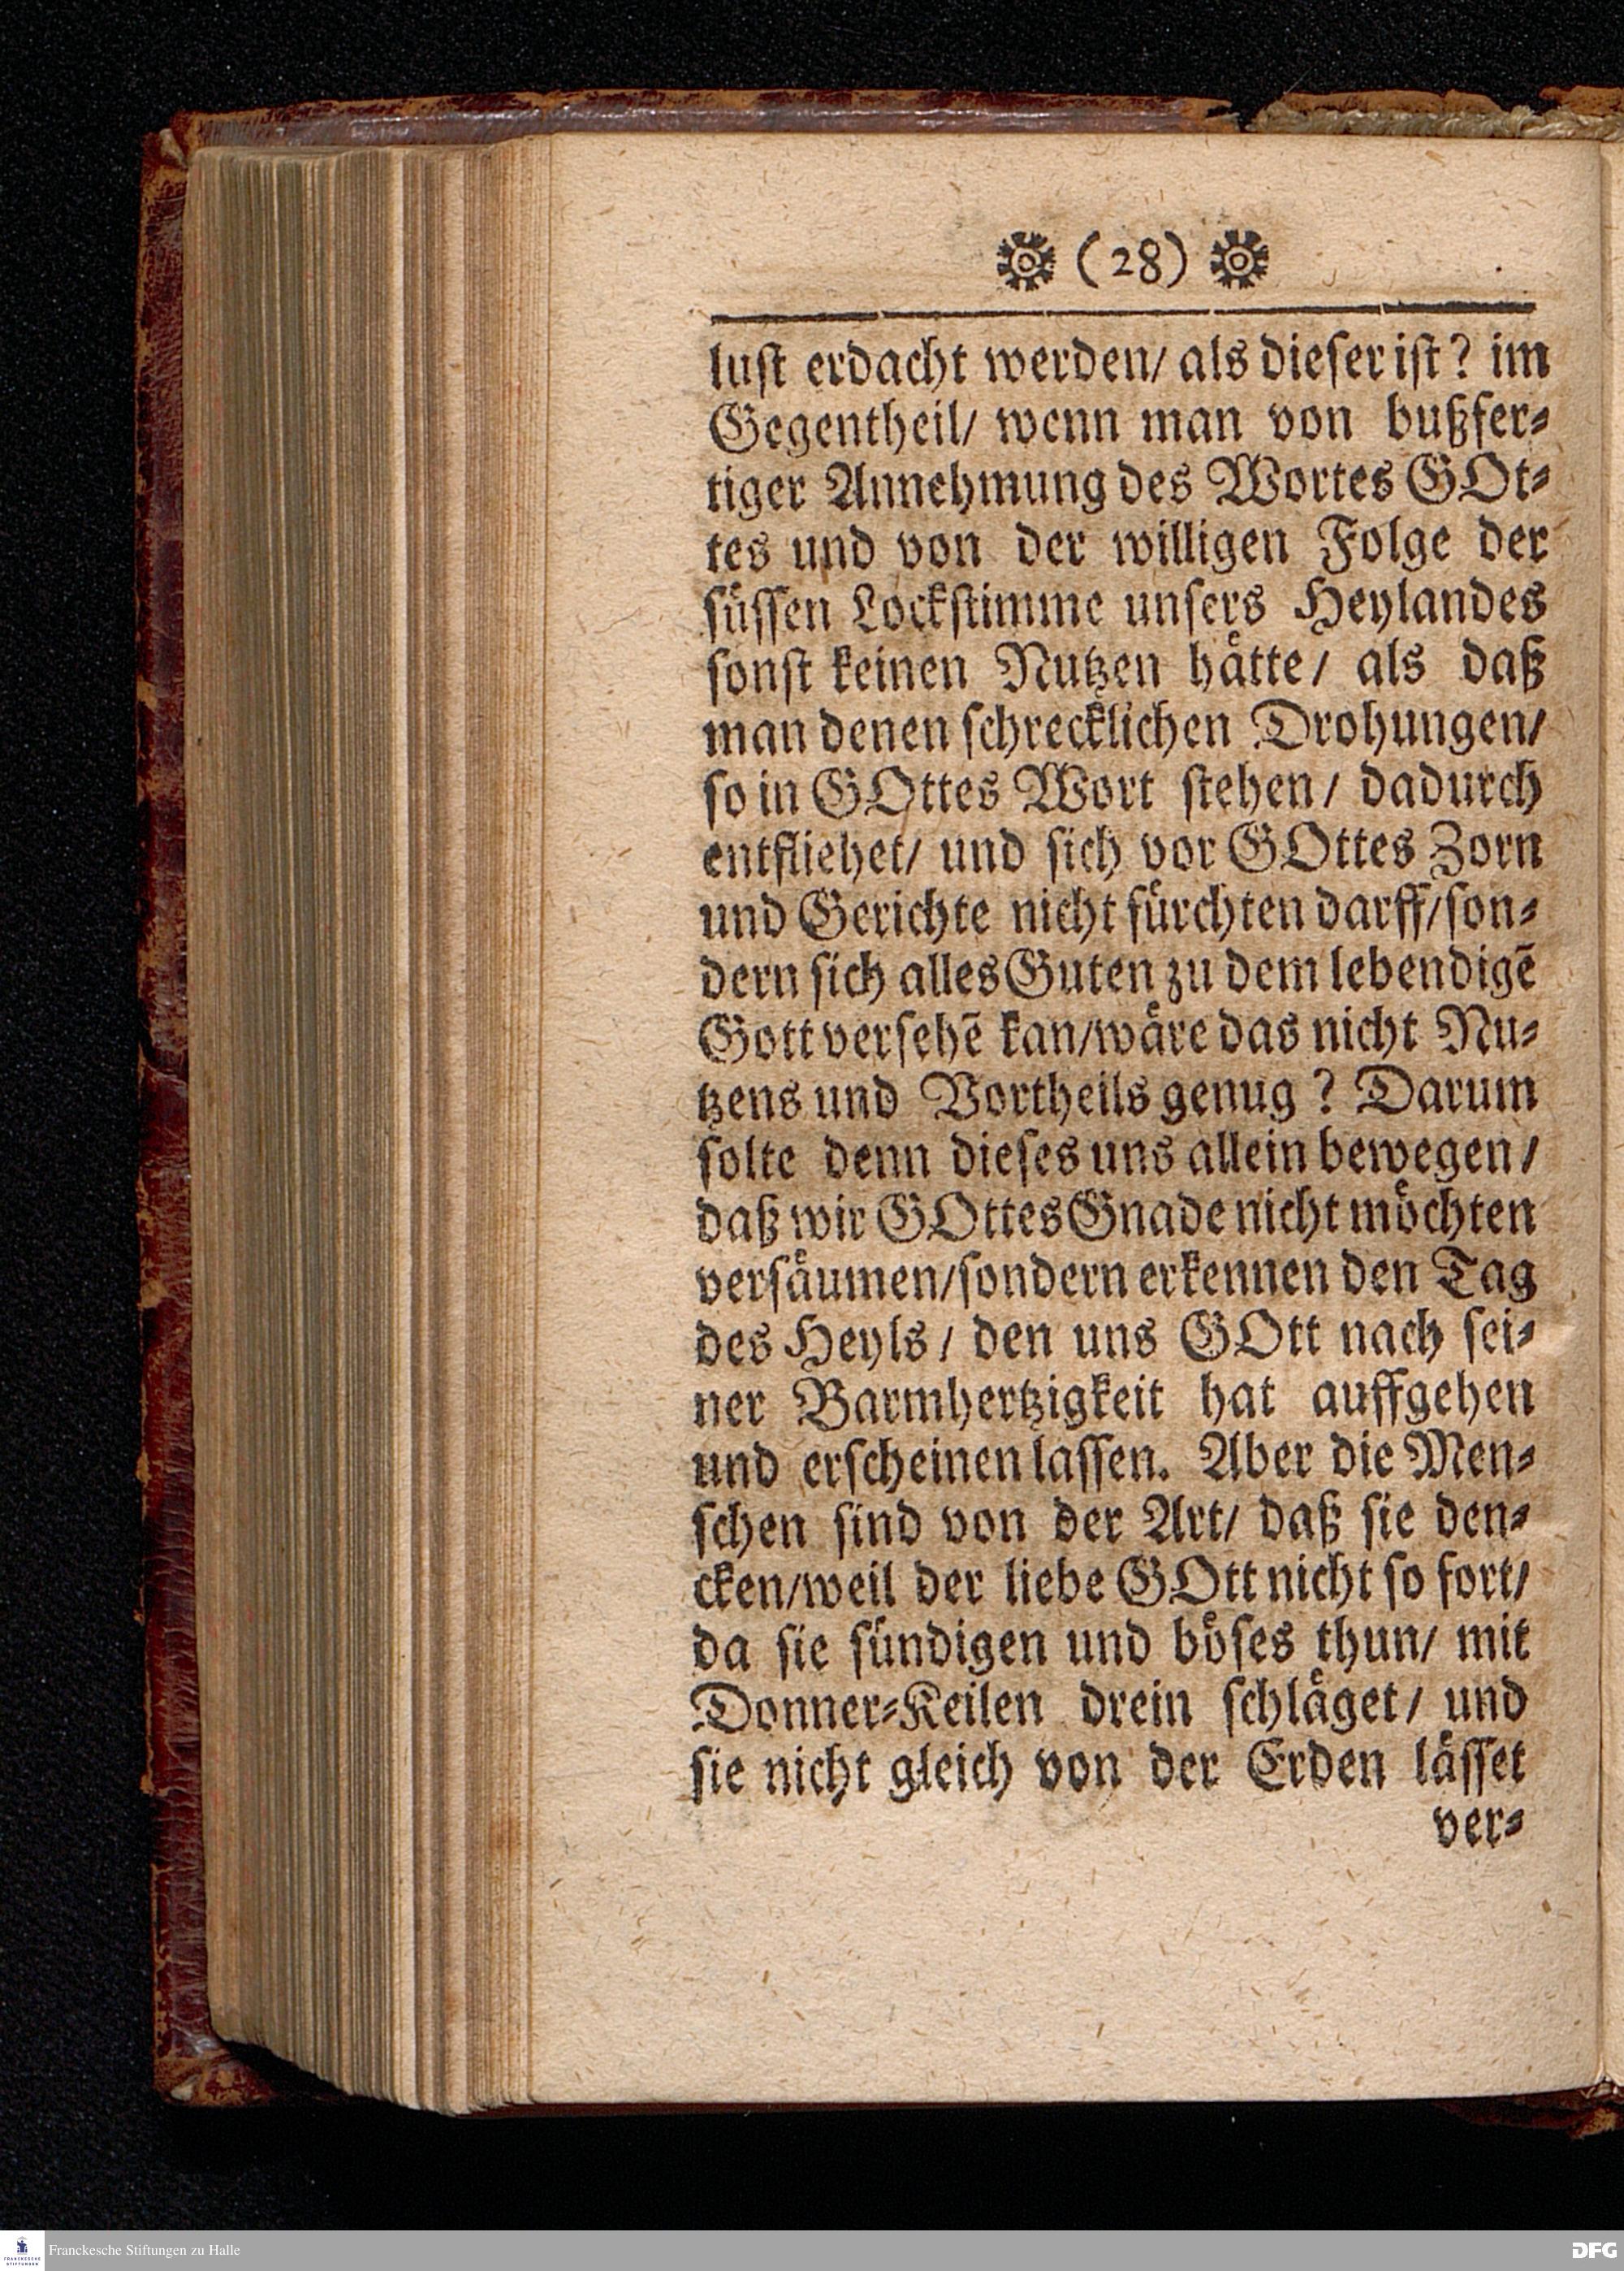 (28)
lust erdacht werden/ als dieser ist? im
Gegentheil/ wenn man von bußfer-
tiger Annehmung des Wortes GOt-
tes und von der willigen Folge der
süssen Lockstimme unsers Heylandes
sonst keinen Nutzen hätte/ als daß
man denen schrecklichen Drohungen/
so in GOttes Wort stehen/ dadurch
entfliehet/ und sich vor GOttes Zorn
und Gerichte nicht fürchten darff/ son-
dern sich alles Guten zu dem lebendigẽ
Gott versehẽ kan/ wäre das nicht Nu-
tzens und Vortheils genug? Darum
solte denn dieses uns allein bewegen/
daß wir GOttes Gnade nicht möchten
versäumen/ sondern erkennen den Tag
des Heyls/ den uns GOtt nach sei-
ner Barmhertzigkeit hat auffgehen
und erscheinen lassen. Aber die Men-
schen sind von der Art/ daß sie den-
cken/ weil der liebe GOtt nicht so fort/
da sie sündigen und böses thun/ mit
Donner-Keilen drein schläget/ und
sie nicht gleich von der Erden lässet
ver-
FRANCKESCHE STIFTUNGEN
Franckesche Stiftungen zu Halle
DFG